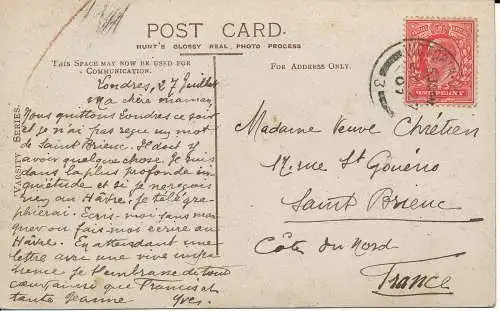 POST CARD.
HUNT'S GLOSSY REAL PHOTO PROCESS
THIS SPACE MAY NOW BE USED FOR COMMUNICATION.
FOR ADDRESS ONLY.
VARSITY SERIES.
Londres, 27 Juillet
Ma chère maman,
Nous quittons Londres ce soir
et je n'ai pas reçu un mot
de Saint Brieuc. Il doit y
avoir quelque chose. Je suis
dans la plus profonde in
quiétude et si je ne reçois
rien au Hâvre, je télé gra-
phierai. Ecris-moi sans man
quer ou fais moi écrire au
Hâvre. En attendant une
lettre avec une vive impa
tience je t'embrasse de tout
coeur ainsi que Francis et
tante Jeanne Yves.
Madame Veuve Chrétien
17, rue St Gouéno
Saint Brieuc
Côte du Nord
France
ONE PENNY
3
07